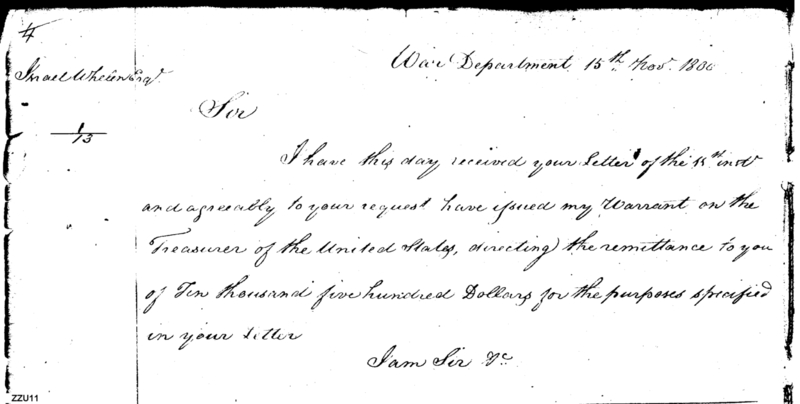 4
War Department 15th Novr. 1800
Israel Whelen Esqr.
Sir
1/13
I have this day received your Letter of the 11th inst
and agreeably to your request have issued my Warrant on the
Treasurer of the United States, directing the remittance to you
of Ten thousand five hundred Dollars for the purposes specified
in your Letter
I am Sir &c
ZZU11